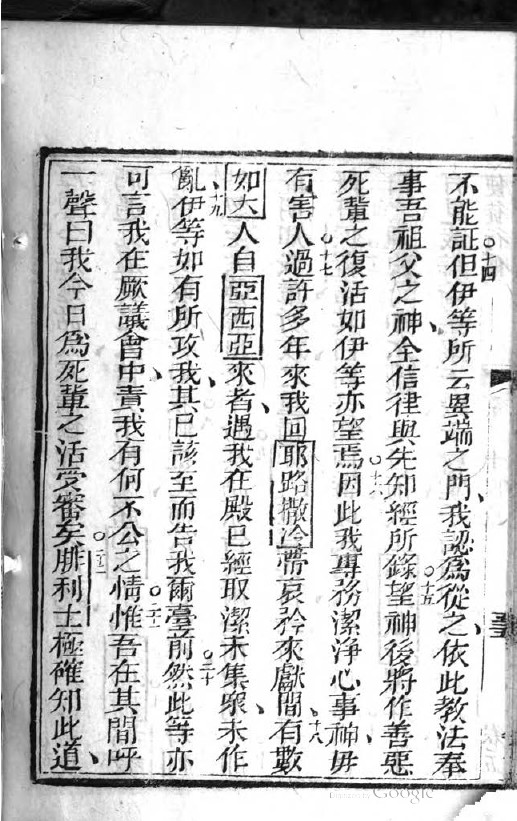 不能証但伊等所云異端之門、我認爲從之、依此教法奉
○十四
事吾祖父之神、全信律與先知經所錄望神後將作善惡
○十五
死輩之復活如伊等亦望焉因此我專務潔淨心事神、毋
○十六
有害人過許多年來我回耶路撒冷帶哀矜來獻間、有數
○十七
○十八
如大人自亞西亞來者、遇我在殿已經取潔未集眾、未作
亂伊等如有所攻我、其已該至而告我爾臺前然此等亦
○十九
○二十
可言我在厥議會中、責我有何不公之情惟吾在其間呼
○二一
一聲曰我今日爲死輩之活受審矣腓利士極確知此道、
○二二
Google